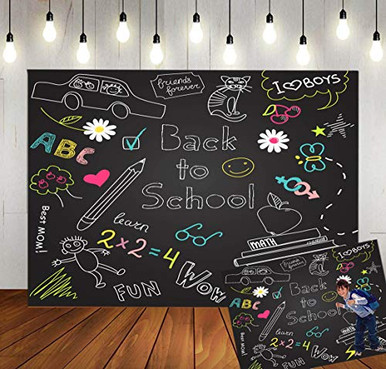 friends
forever
I BOYS
ABC
Back
to
School
learn
2×2=4
MATH
Best MOM!
FUN
Wow
Wow
I BOYS
ABC
Back
to
School
learn
2×2=4
MATH
FUN
Wow